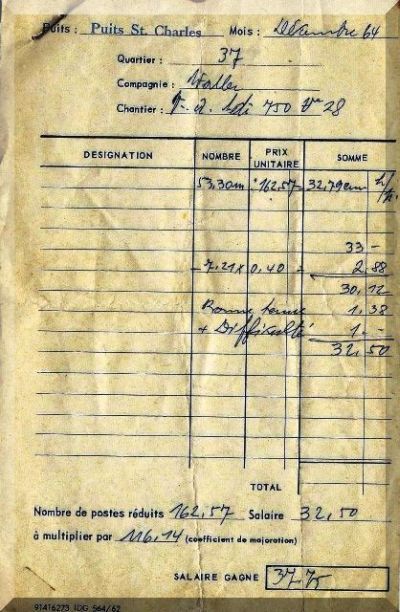 Puits : Puits St. Charles Mois : Décembre 64
Quartier : 37
Compagnie :
Chantier : 750 28
DESIGNATION NOMBRE PRIX UNITAIRE SOMME
53,30 162,57 32,79
33 -
- 7,21 x 0,40 = 2,88
30,12
Bonne tenue 1,38
+ Difficulté 1. -
32,50
TOTAL
Nombre de postes réduits 162,57 Salaire 32,50
à multiplier par 116,14 (coefficient de majoration)
SALAIRE GAGNE 37,75
91416273 IDG 564/62